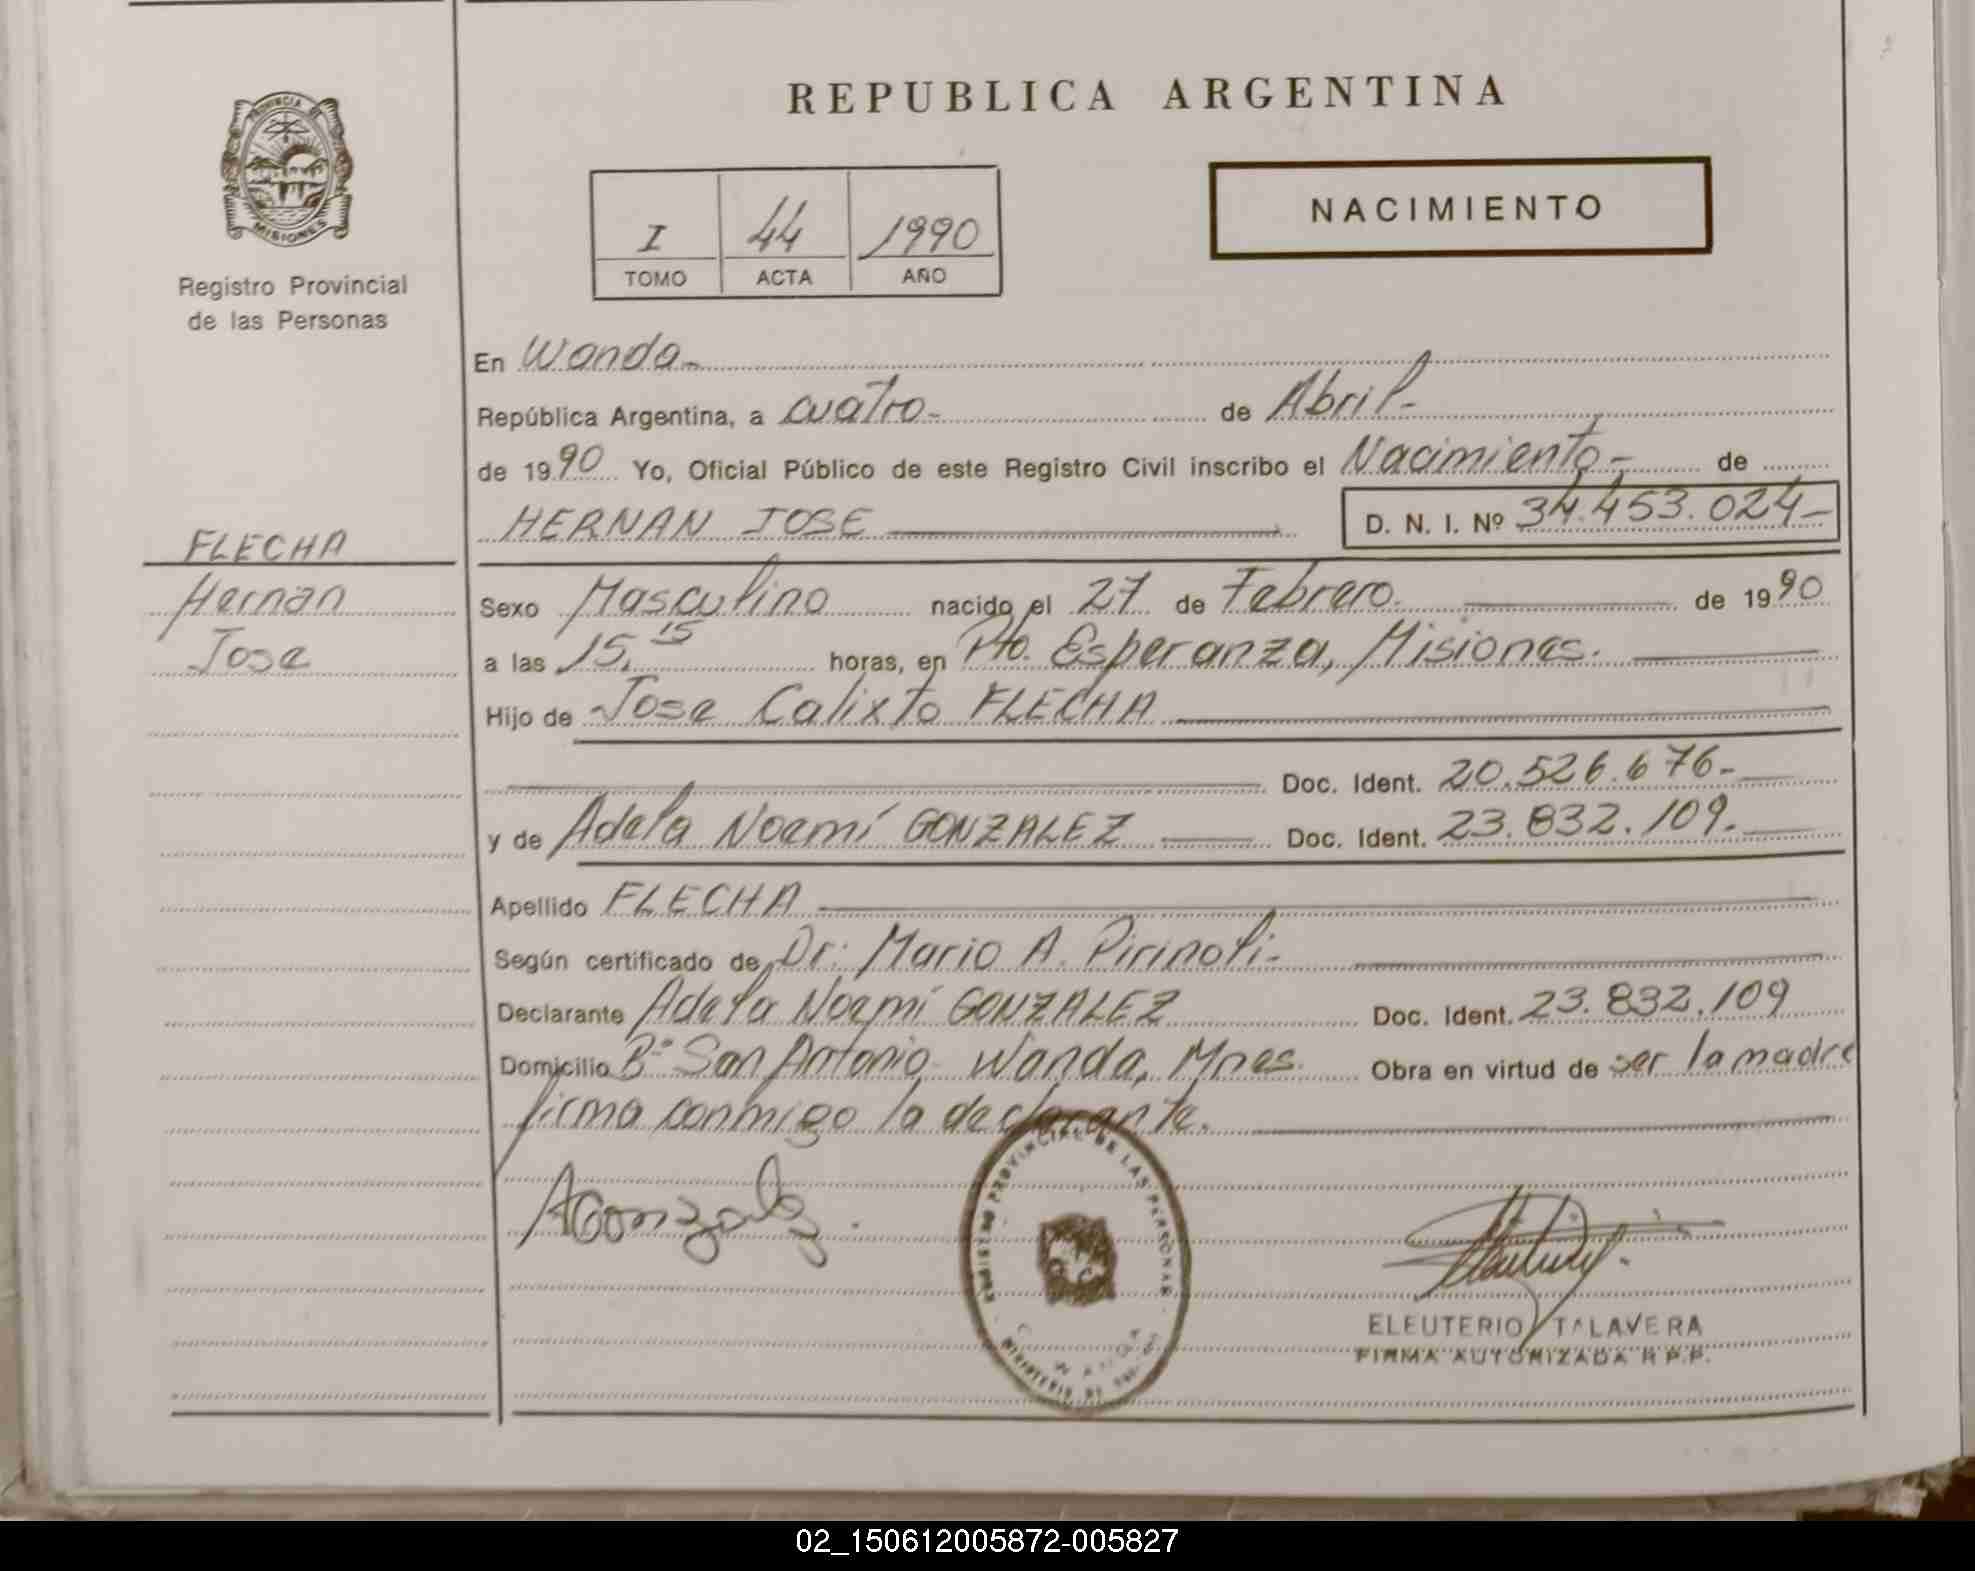 REPUBLICA ARGENTINA
PROVINCIA DE
MISIONES
Registro Provincial
de las Personas
I 44 1990
TOMO ACTA AÑO
NACIMIENTO
En Wanda-
República Argentina, a cuatro- de Abril-
de 1990 Yo, Oficial Público de este Registro Civil inscribo el Nacimiento- de
HERNAN JOSE D. N. I. Nº 34.453.024-
FLECHA
Hernan
Jose
Sexo Masculino nacido el 27 de Febrero. de 1990
a las 15,15 horas, en Pto. Esperanza, Misiones.
Hijo de Jose Calixto FLECHA
Doc. Ident. 20.526.676-
y de Adela Noemí GONZALEZ Doc. Ident. 23.832.109-
Apellido FLECHA
Según certificado de Dr: Mario A. Pirinoli-
Declarante Adela Noemí GONZALEZ Doc. Ident. 23.832.109
Domicilio Bº San Antonio- Wanda, Mnes. Obra en virtud de ser la madre
firma conmigo la declarante.
AGonzalez.
REGISTRO PROVINCIAL DE LAS PERSONAS
WANDA
MINISTERIO DE
ELEUTERIO TALAVERA
FIRMA AUTORIZADA R.P.P.
02_150612005872-005827